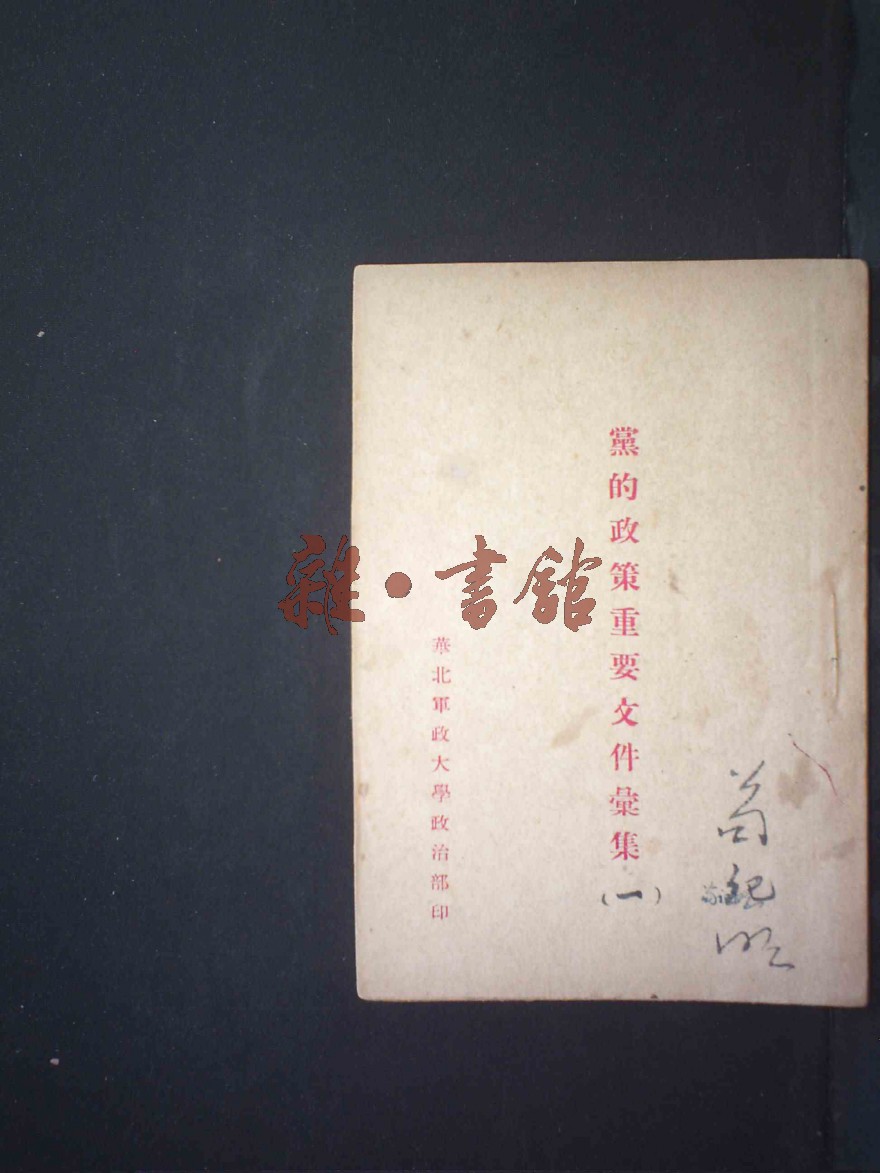 黨的政策重要文件彙集
(一)
華北軍政大學政治部印
雜·書館